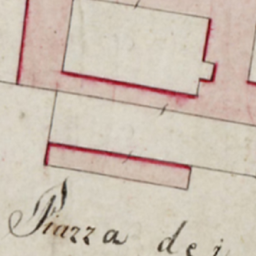 Piazza dei